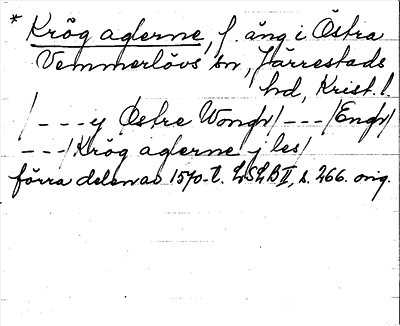 * Krög aglerne, f. äng i Östra
Vemmerlövs sn, Järrestads
hd, Krist. l.
/---y Østre Wongr/---/Engr/
---/Krög aglerne j les/
förra delen av 1570-t. LSLB II, s. 266. orig.